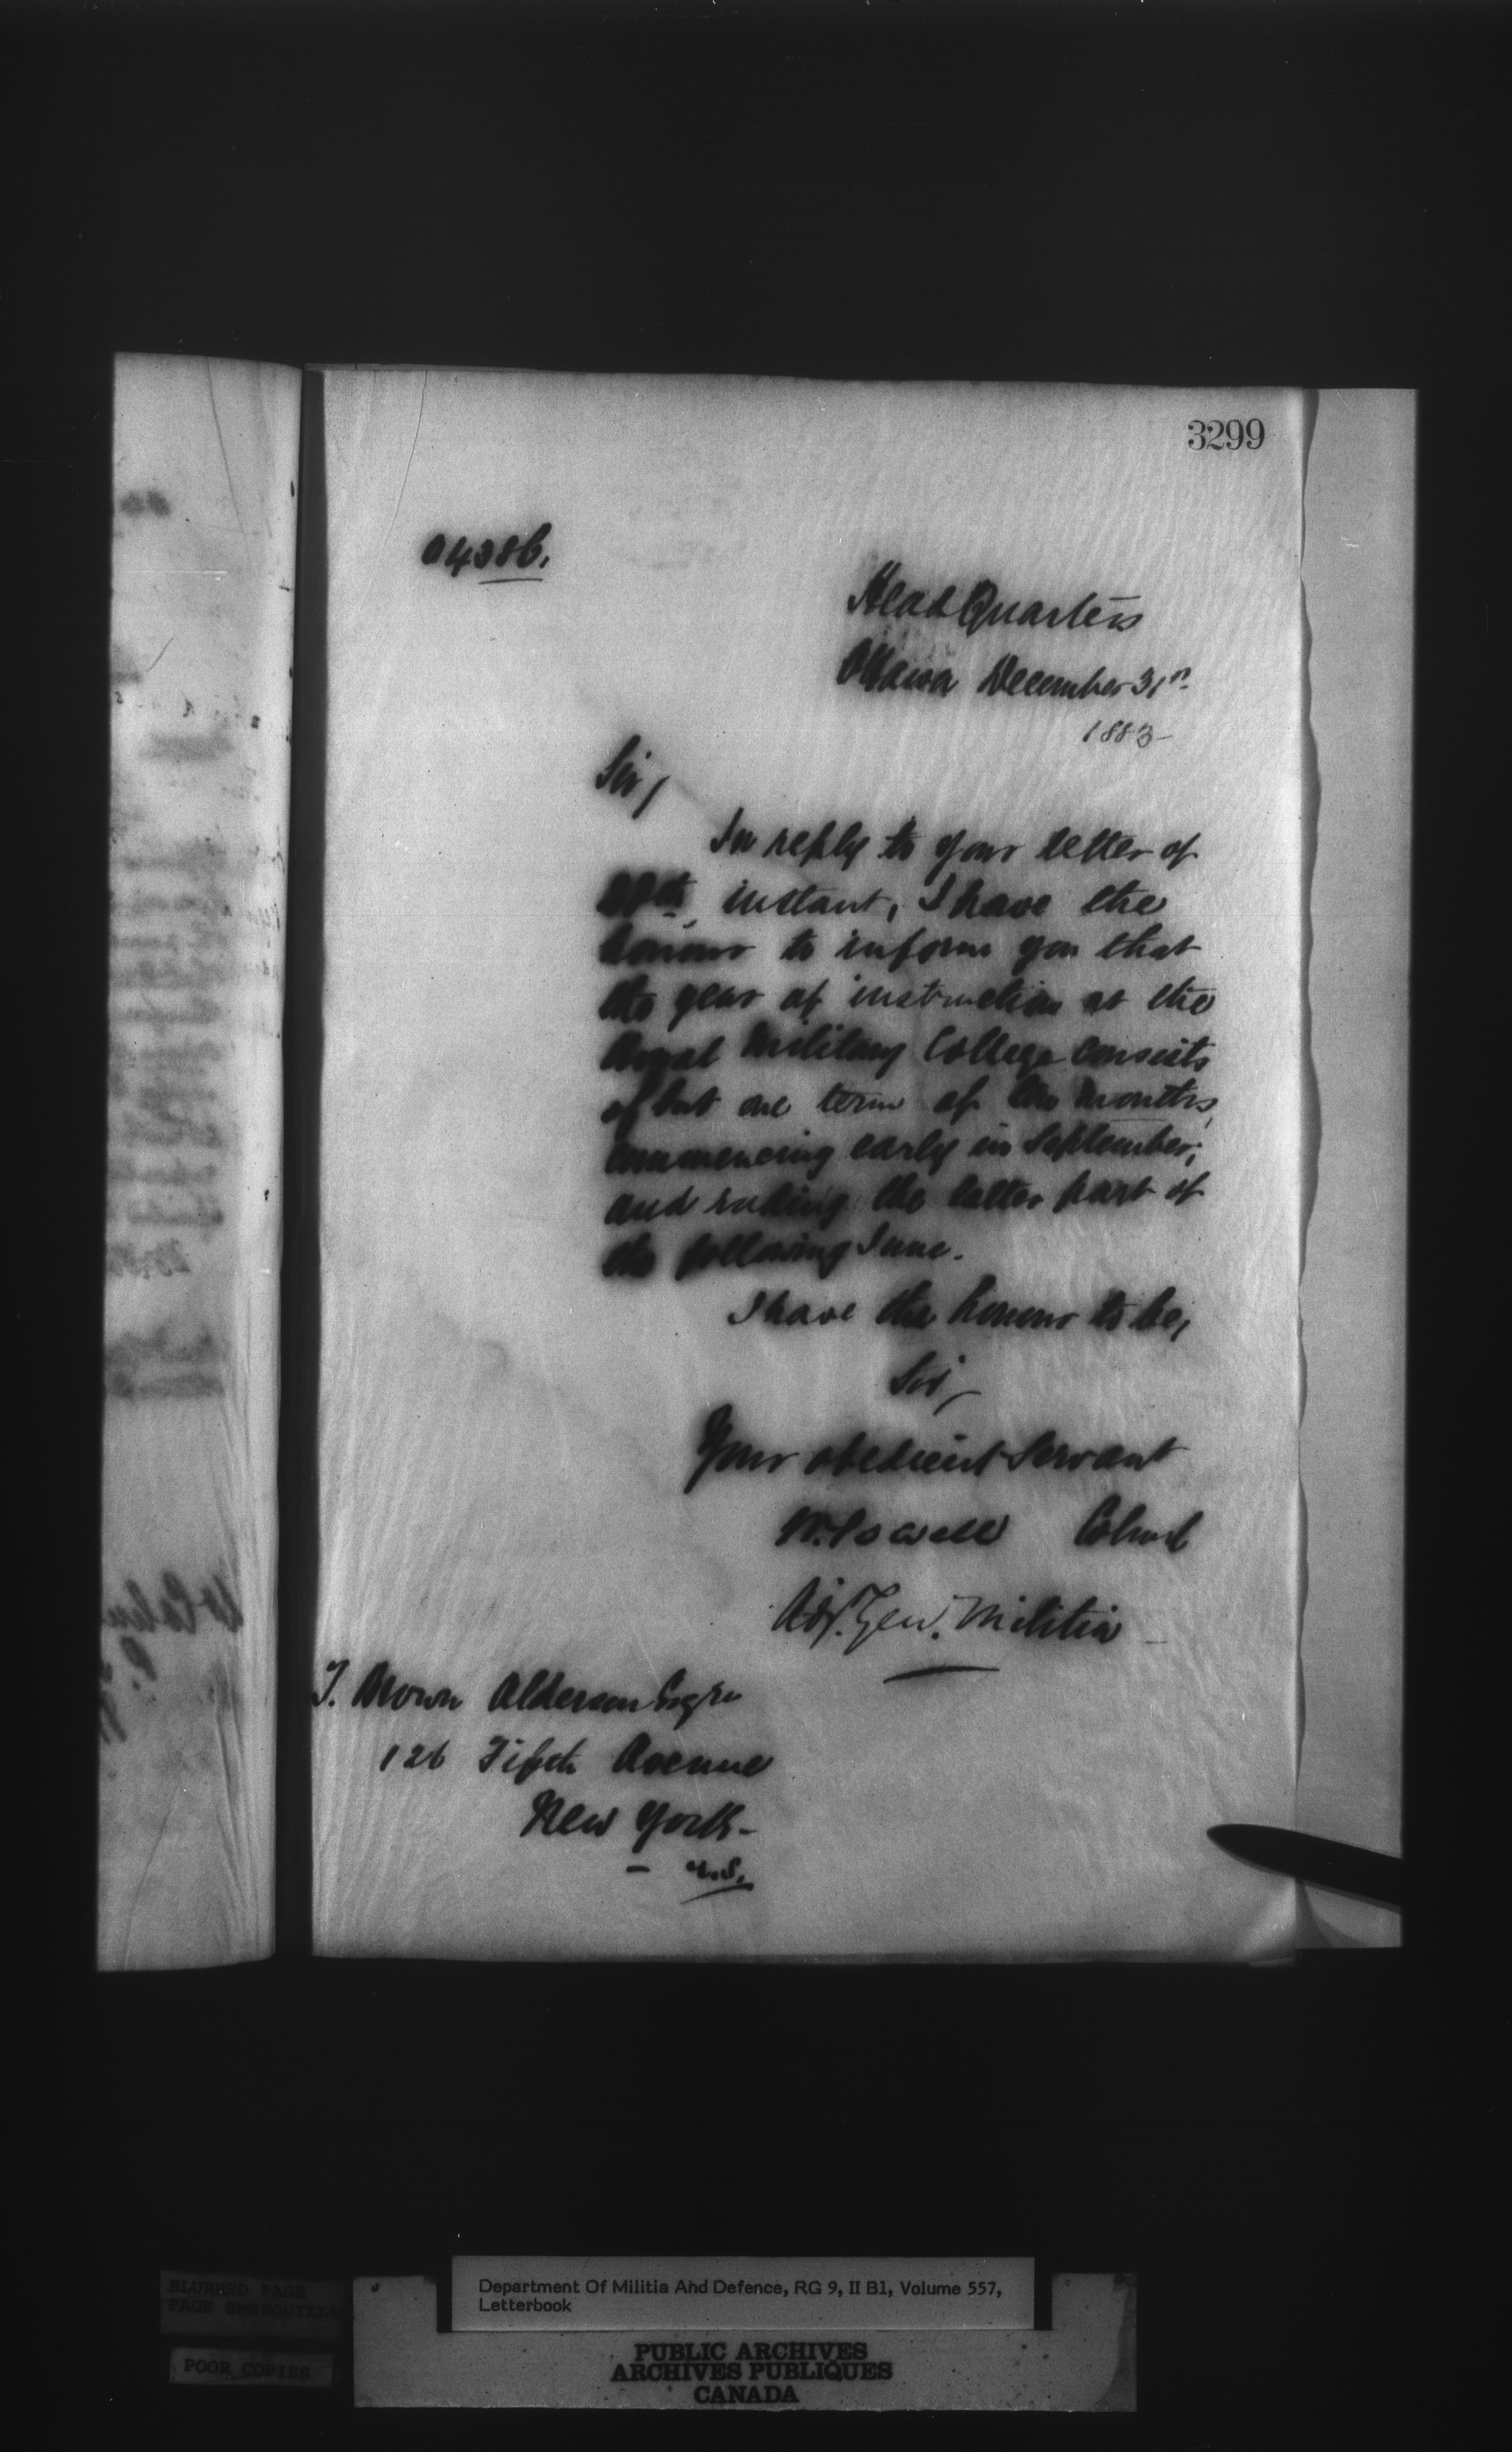 3299
Head Quarters
Ottawa December 31st
1883
Sir,
In reply to your letter of
instant, I have the
honour to inform you that
the year of instruction at the
Royal Military College consists
of but one term of ten months,
commencing early in September,
and ending the latter part of
the following June.
I have the honour to be,
Sir,
Your obedient Servant
W. Powell Colonel
Adj. Gen. Militia
T. Brown Alderson Esqre
126 Fifth Avenue
New York -
- U.S.
BLURRED PAGE
PAGE EMBROUILLEE
POOR COPIES
Department Of Militia And Defence, RG 9, II B1, Volume 557,
Letterbook
PUBLIC ARCHIVES
ARCHIVES PUBLIQUES
CANADA